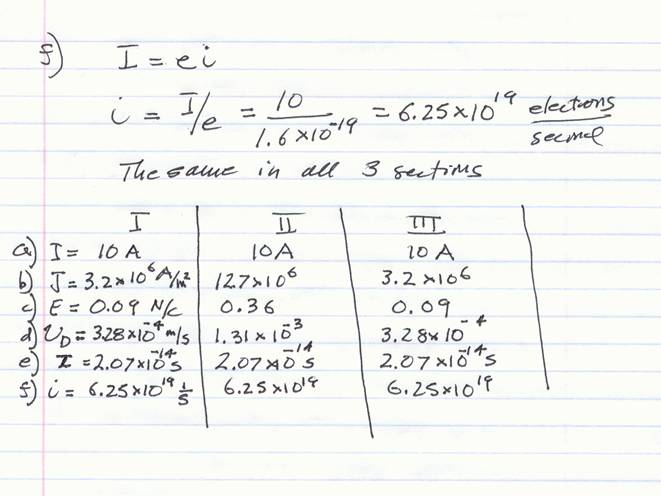 f) I = ei
i = I/e = 10 / 1.6×10^-19 = 6.25×10^19 electrons/second
The same in all 3 sections
I II III
a) I = 10 A 10 A 10 A
b) J = 3.2×10^6 A/m² 12.7×10^6 3.2×10^6
c) E = 0.09 N/C 0.36 0.09
d) v_D = 3.28×10^-4 m/s 1.31×10^-3 3.28×10^-4
e) τ = 2.07×10^-14 s 2.07×10^-14 s 2.07×10^-14 s
f) i = 6.25×10^19 1/s 6.25×10^19 6.25×10^19